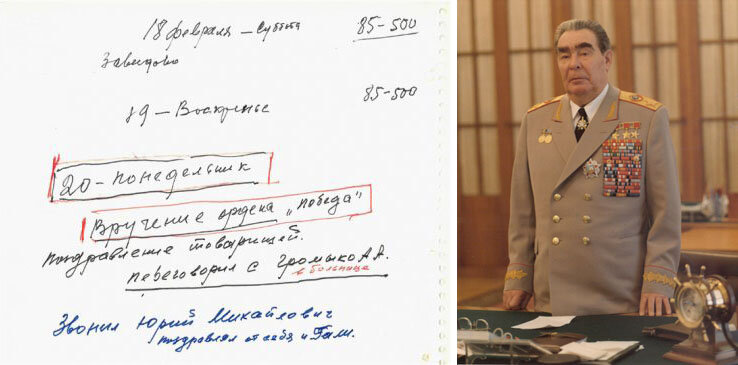 18 февраля — Суббота 85-500
Завидово
19 — Воскренье 85-500
20 - понедельник
Вручение ордена „Победа"
Поздравление товарищей.
переговорил с Громыко А А.
в больнице
Звонил Юрий Михайлович
поздравлял от себя и Гали.